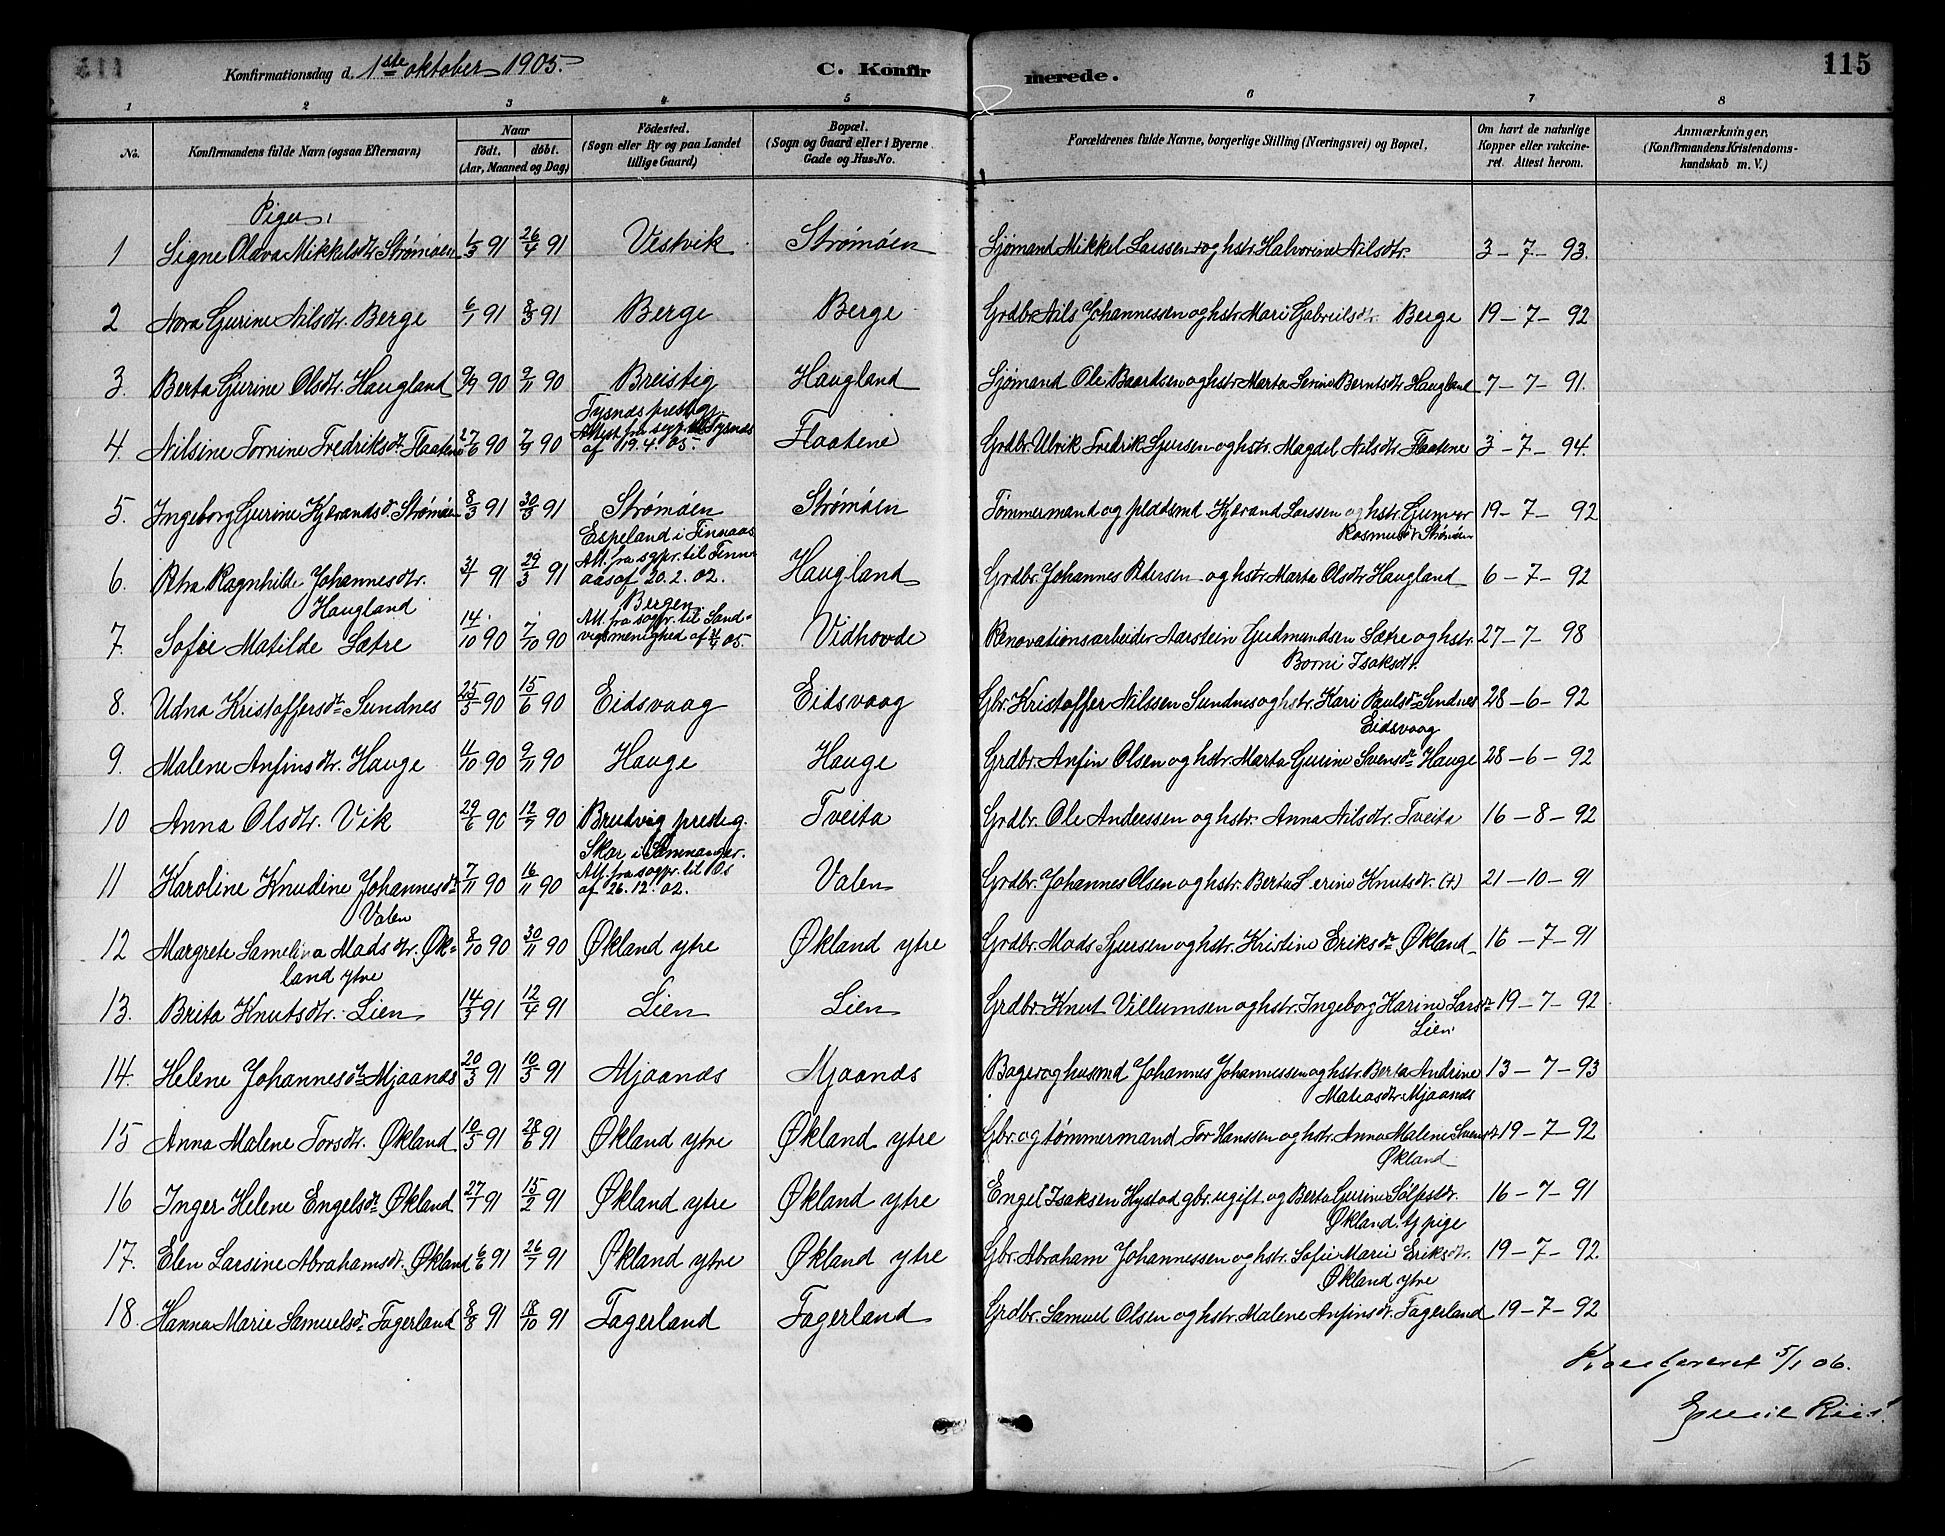 Konfirmationsdag d. 1ste oktober 1905. C. Konfirmerede. 115
1 2 3 4 5 6 7 8
No. Konfirmandens fulde Navn (ogsaa Efternavn) Naar födt. döbt. (Aar, Maaned og Dag) Födested. (Sogn eller By og paa Landet tillige Gaard) Bopæl. (Sogn og Gaard eller i Byerne Gade og Hus-No. Forældrenes fulde Navne, borgerlige Stilling (Næringsvei) og Bopæl. Om havt de naturlige Kopper eller vakcineret. Attest herom. Anmærkninger. (Konfirmandens Kristendomskundskab m. V.)
Piger,
1 Signe Olava Mikkelsdtr Strømøen 1/3 91 26/4 91 Vestvik Strømøen Sjømand Mikkel Larssen og hstr. Halvorine Nilsdtr. 3-7-93.
2 Nora Gurine Nilsdtr. Berge 6/1 91 8/3 91 Berge Berge Grdbr. Nils Johannessen og hstr. Mari Gabrielsdtr. Berge 19-7-92
3. Berta Gurine Olsdtr. Haugland 9/9 90 9/11 90 Breistig Haugland Sjømand Ole Baardsen og hstr. Marta Serine Berntsdtr. Haugland 7-7-91.
4. Nilsine Tornine Fredriksdtr. Flaatene 27/6 90 7/9 90 Tysnæs prestegj. Attest fra sogpr. til Tysnæs af 19.4.05. Flaatene Grdbr. Ulrik Fredrik Sjursen og hstr. Magdel Nilsdtr Flaatene 3-7-94.
5. Ingeborg Gurine Kjerandsdr. Strømøen 8/3 91 30/3 91 Strømøen Strømøen Tømmermand og pladsmd Kjerand Larssen og hstr. Gunvor
Rasmusdtr Strømøen 19-7-92
6. Petra Ragnhilde Johannesdtr.
Haugland 3/1 91 29/3 91 Espeland i Finnaas Att. fra sogpr. til Finnaas af 20.2.02. Haugland Grdbr. Johannes Pedersen og hstr. Marta Olsdtr Haugland 6-7-92
7. Sofie Matilde Sætre 14/10 90 7/10 90 Bergen. Att. fra sogpr. til Sandvigsmenighed af 05. Vidhovde Renovationsarbeider Aarstein Gudmundsen Sætre og hstr.
Borni Isaksdtr. 27-7-98
8. Udna Kristoffersdtr Sundnes 25/5 90 15/6 90 Eidsvaag Eidsvaag Gbr. Kristoffer Nilssen Sundnes og hstr. Kari Paulsdtr Sundnes
Eidsvaag 28-6-92
9. Malene Anfinsdtr. Hauge 4/10 90 9/11 90 Hauge Hauge Grdbr. Anfin Olsen og hstr. Marta Gurine Svensdtr Hauge 28-6-92
10 Anna Olsdtr. Vik 29/6 90 12/7 90 Bredvig presteg. Tveita Grdbr. Ole Anderssen og hstr. Anna Nilsdtr. Tveita 16-8-92
11 Karoline Knudine Johannesdtr
Valen 7/11 90 16/11 90 Skar i Samnanger. Att. fra sogpr. til Os af 26.12.02. Valen Grdbr. Johannes Olsen og hstr. Berta Serine Knutsdtr. (+) 21-10-91
12 Margrete Samelina Madsdtr. Økland
ytre 8/10 90 30/11 90 Økland ytre Økland ytre Grdbr. Mads Sjursen og hstr. Kristine Eriksdtr Økland 16-7-91
13. Brita Knutsdtr. Lien 14/3 91 12/4 91 Lien Lien Grdbr. Knut Villumsen og hstr. Ingeborg Karine Larsdtr
Lien 19-7-92
14. Helene Johannesdtr Mjaanes 20/3 91 10/5 91 Mjaanes Mjaanes Bager og husmd Johannes Johannessen og hstr. Berta Andrine
Mateasdtr. Mjaanes 13-7-93
15 Anna Malene Torsdtr. Økland 10/5 91 28/6 91 Økland ytre Økland ytre Gbr. og tømmermand Tor Hanssen og hstr. Anna Malene Svensdtr
Økland 19-7-92
16 Inger Helene Engelsdtr Økland 27/1 91 15/2 91 Økland ytre Økland ytre Engel Isaksen Hystad gbr. ugift og Berta Gurine Sølfestdtr.
Økland. tj pige 16-7-91
17. Elen Larsine Abrahamsdt. Økland 6/6 91 26/7 91 Økland ytre Økland ytre Gbr. Abraham Johannessen og hstr. Sofie Marie Eriksdtr.
Økland ytre 19-7-92.
18. Hanna Marie Samuelsdtr Fagerland 8/8 91 18/10 91 Fagerland Fagerland Grdbr. Samuel Olsen og hstr. Malene Anfinsdtr. Fagerland 19-7-92
Konfereret 5/1 06.
Emil Riis.